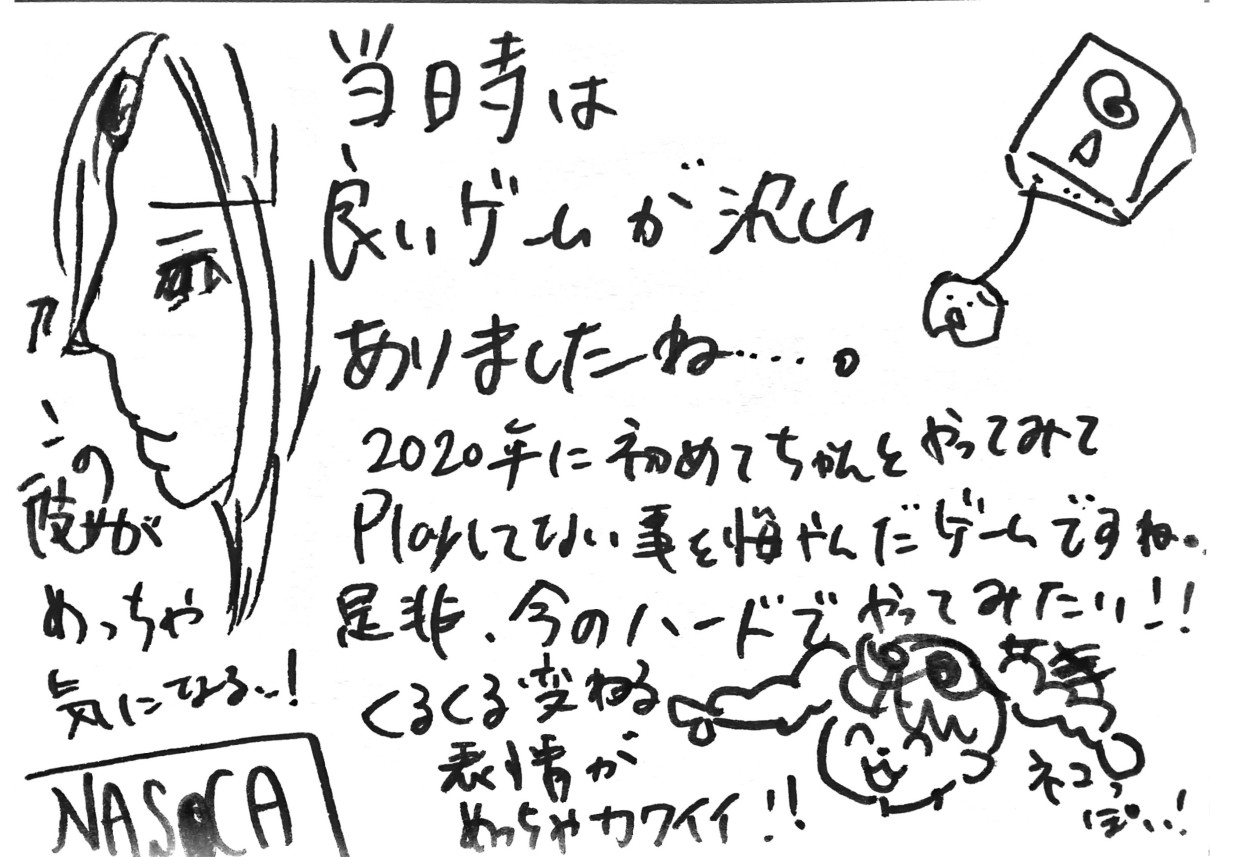 当時は
良いゲームが沢山
ありましたね……。
2020年に初めてちゃんとやってみて
Playしてない事を悔やんだゲームですね。
是非、今のハードでやってみたい!!
くるくる変わる
表情が
めっちゃカワイイ!!
ネコっ
ぽい!
↑
この
彼が
めっちゃ
気になる…!
NASCA